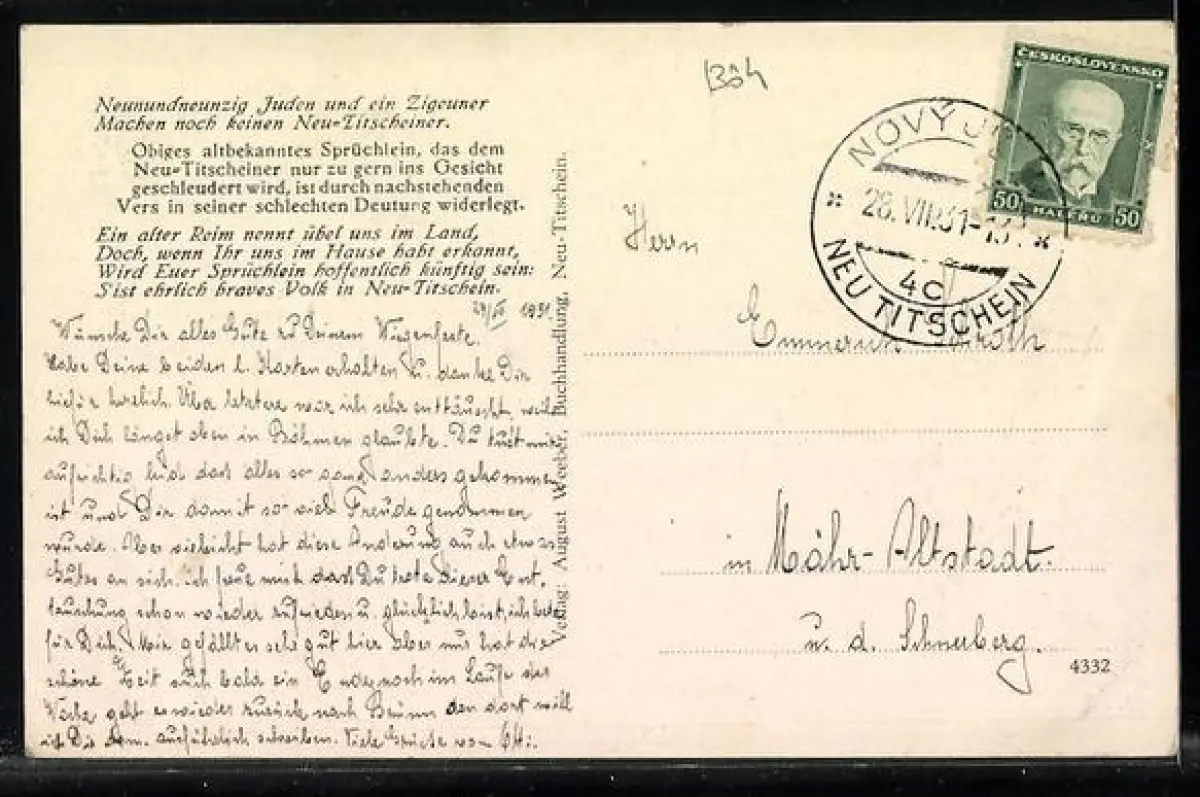 Neunundneunzig Juden und ein Zigeuner
Machen noch keinen Neu-Titscheiner.
Obiges altbekanntes Sprüchlein, das dem
Neu-Titscheiner nur zu gern ins Gesicht
geschleudert wird, ist durch nachstehenden
Vers in seiner schlechten Deutung widerlegt.
Ein alter Reim nennt übel uns im Land,
Doch, wenn Ihr uns im Hause habt erkannt,
Wird Euer Sprüchlein hoffentlich künftig sein:
S'ist ehrlich braves Volk in Neu-Titschein.
1931
Wünsche Dir alles Gute zu Deinem Wiegenfeste.
Habe Deine beiden l. Karten erhalten u. danke Dir
hiefür herzlich. Über letztere war ich sehr enttäuscht, weil
ich Dich längst oben in Böhmen glaubte. Du tust mir
aufrichtig leid das alles so ganz anders gekommen
ist und Dir damit so viel Freude genommen
wurde. Aber vieleicht hat diese Änderung auch etwas
Gutes an sich. ich freue mich das Du trotz dieser Ent,
täuschung schon wieder zufrieden u. glücklich bist, ich
für Dich. Mir gefällt es sehr gut hier aber nur hat die
schöne Zeit auch bald ein Ende, noch im Laufe der
Woche geht es wieder zurück nach Brünn den dort will
ich Dir dann. ausführlich schreiben. Viele Grüsse von
Verlag: August Weeber, Buchhandlung, Neu-Titschein.
Böh
ČESKOSLOVENSKO
50 HALÉŘŮ 50
NOVÝ
28. VII. 31-13
4C
NEU TITSCHEIN
Herrn
Emmerich
in Mähr-Altstadt.
u. d. Schneeberg.
4332